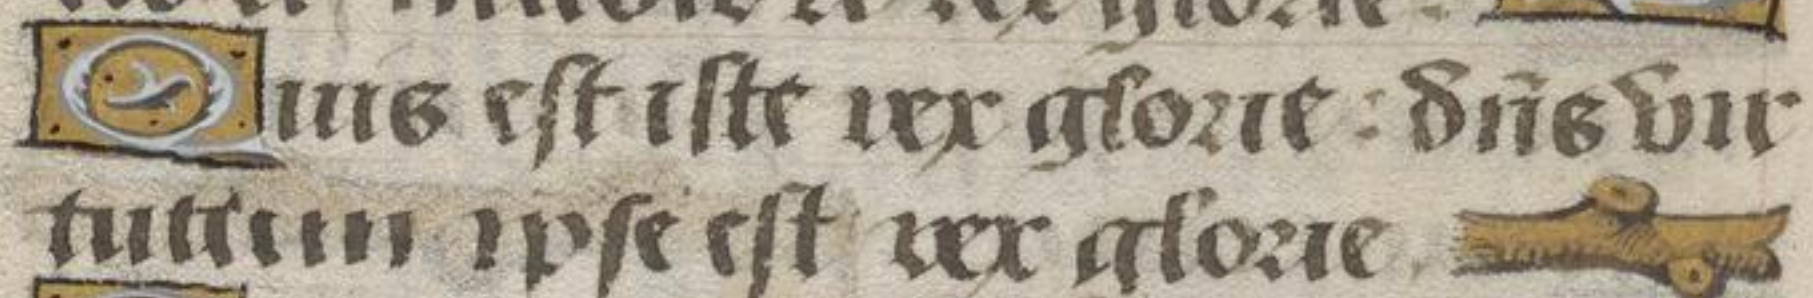 rex glorie :
Quis est iste rex glorie : dn̄s vir
tutum ipse est rex glorie .